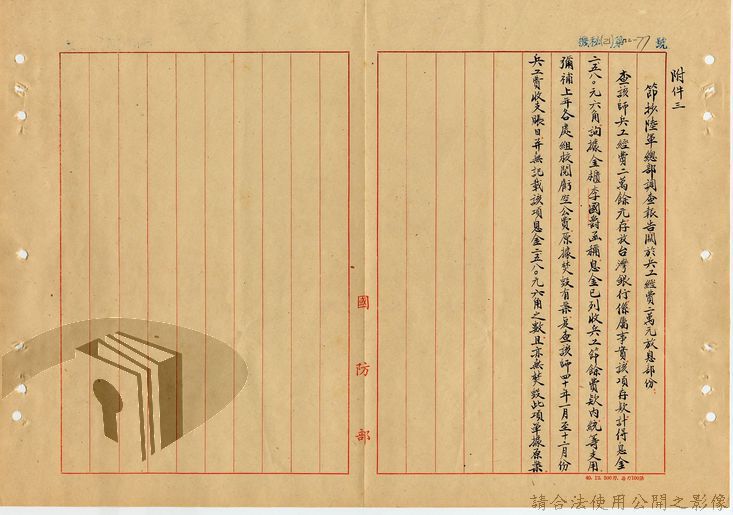 附件三
節抄陸軍總部調查報告關於兵工經費二萬元放息部份
查該師兵工經費二萬餘元存放台灣銀行係屬事實該項存款計得息金
二五八〇元六角詢據金櫃李國爵函稱息金已列收兵工節餘費款內統籌支用
彌補上年各處組校閱虧空公費原據焚毀有案是查該師四十年一月至十二月份
兵工費收支賬目并無記載該項息金二五八〇元六角之數且亦無焚毀此項單據原案
國防部
請合法使用公開之影像